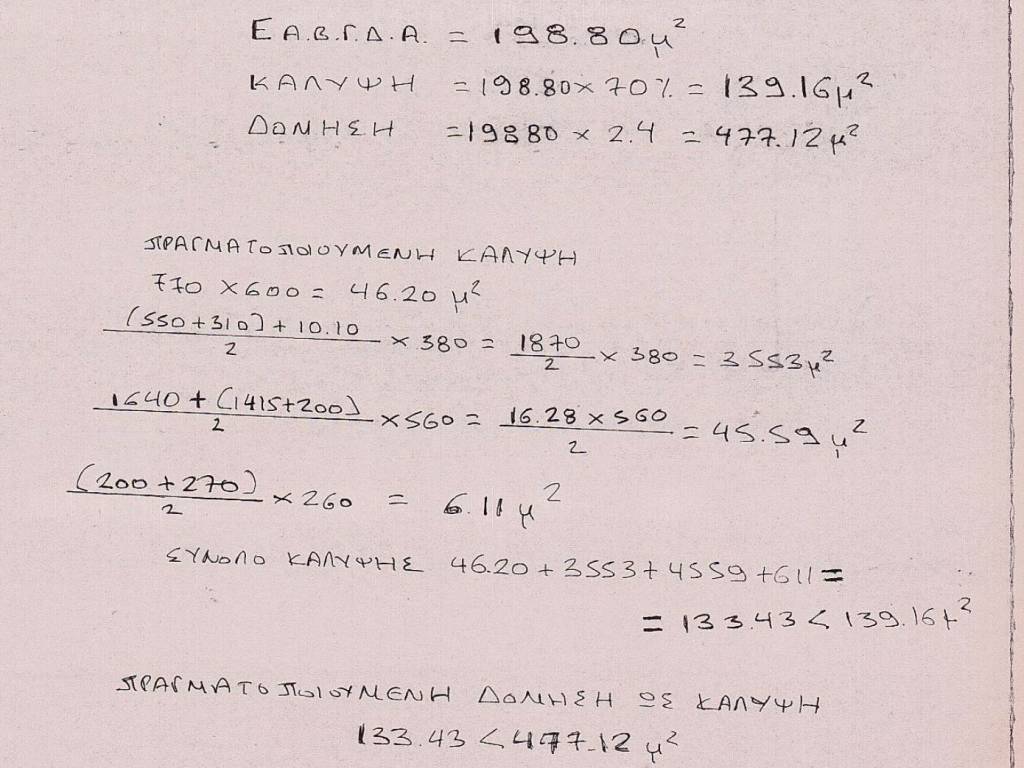 Ε Α.Β.Γ.Δ.Α. = 198.80 μ²
ΚΑΛΥΨΗ = 198.80 × 70% = 139.16 μ²
ΔΟΜΗΣΗ = 19880 × 2.4 = 477.12 μ²
ΠΡΑΓΜΑΤΟΠΟΙΟΥΜΕΝΗ ΚΑΛΥΨΗ
770 × 600 = 46.20 μ²
(550+310)+10.10 / 2 × 380 = 1870 / 2 × 380 = 3553 μ²
1640+(1415+200) / 2 × 560 = 16.28 × 560 / 2 = 45.59 μ²
(200+270) / 2 × 260 = 6.11 μ²
ΣΥΝΟΛΟ ΚΑΛΥΨΗΣ 46.20 + 3553 + 4559 + 611 =
= 133.43 < 139.16 μ²
ΠΡΑΓΜΑΤΟΠΟΙΟΥΜΕΝΗ ΔΟΜΗΣΗ ΩΣ ΚΑΛΥΨΗ
133.43 < 477.12 μ²